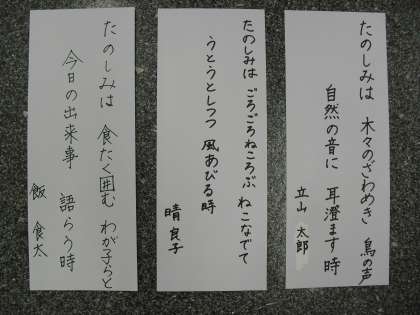 たのしみは 木々のざわめき 鳥の声
自然の音に 耳澄ます時
立山 太郎
たのしみは ごろごろねころぶ ねこなでて
うとうとしつつ 風あびる時
晴 良子
たのしみは 食たく囲む わが子らと
今日の出来事 語らう時
飯 食太